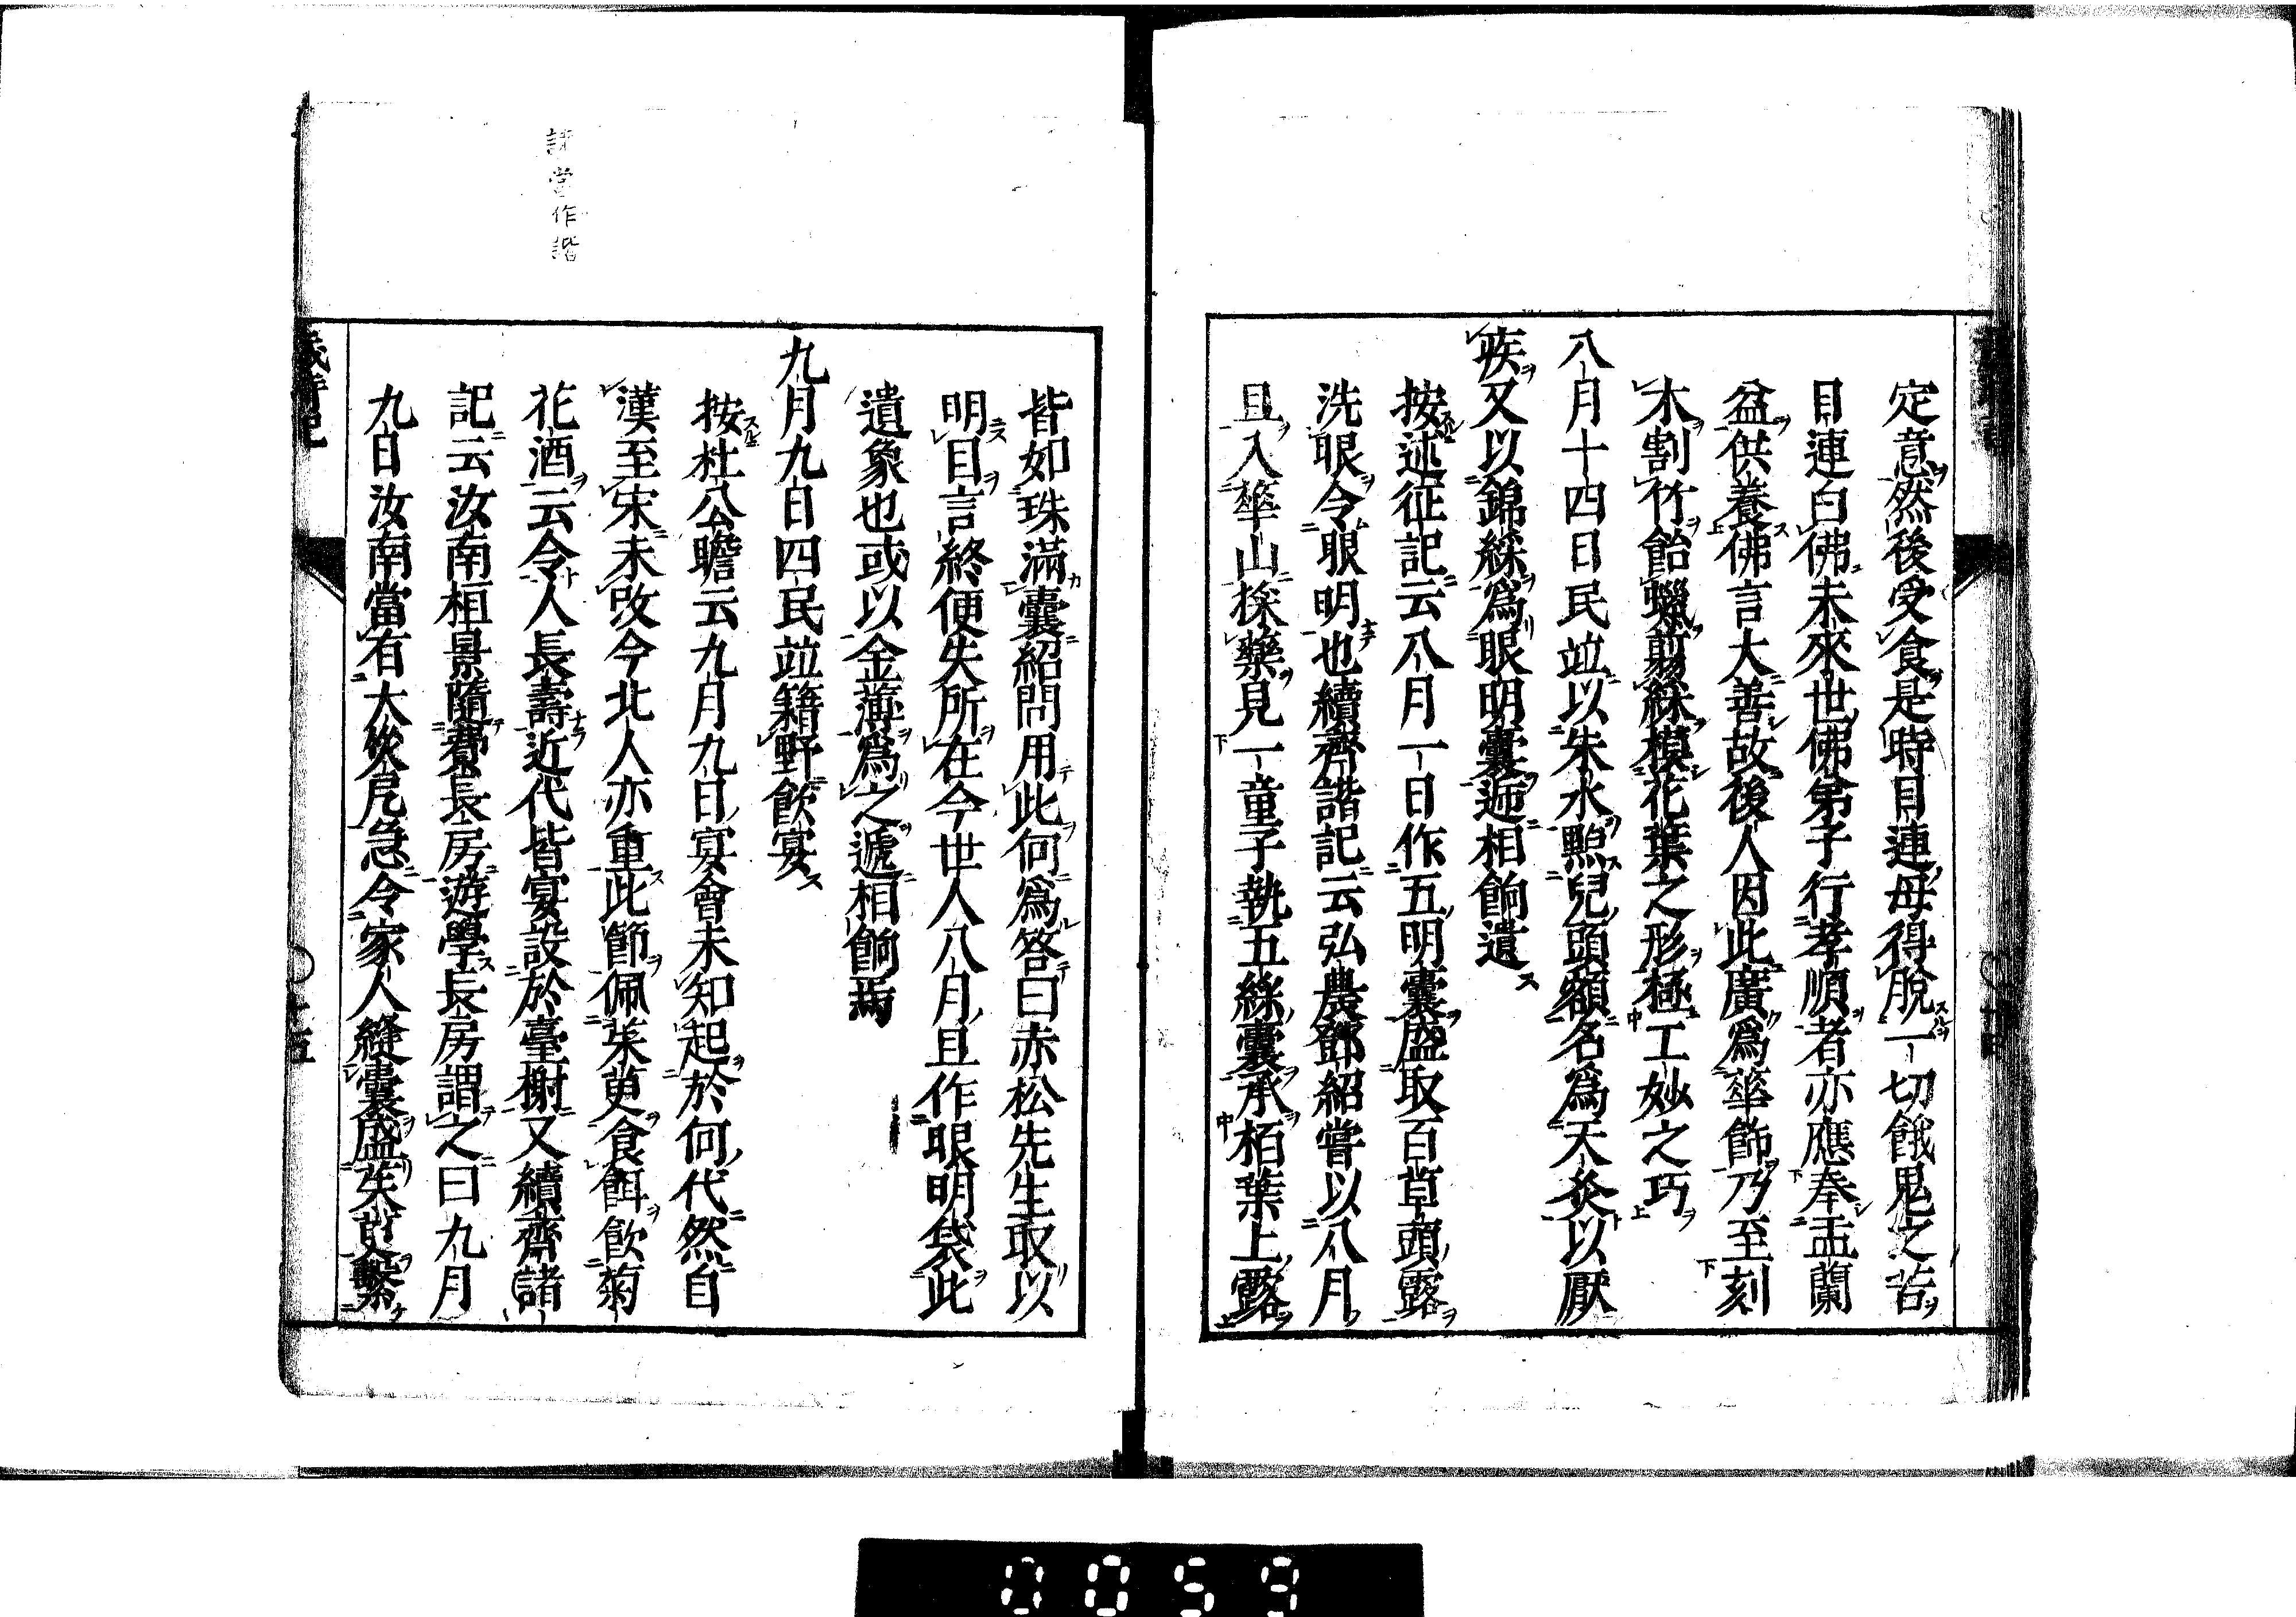 定意然後受食是時目連母得脫一切餓鬼之苦
目連白佛未來世佛弟子行孝順者亦應奉盂蘭
盆供養佛言大善故後人因此廣爲華飾乃至刻
木割竹飴蠟剪綵模花葉之形極工妙之巧
八月十四日民並以朱水點兒頭額名爲天灸以厭
疾又以錦綵爲眼明囊遞相餉遺
按述征記云八月一日作五明囊盛取百草頭露
洗眼令眼明也續齊諧記云弘農鄧紹嘗以八月
旦入華山採藥見一童子執五綵囊承栢葉上露
皆如珠滿囊紹問用此何爲答曰赤松先生取以
明目言終便失所在今世人八月旦作眼明袋此
遺象也或以金薄爲之遞相餉焉
九月九日四民並籍野飲宴
按杜公瞻云九月九日宴會未知起於何代然自
漢至宋未改今北人亦重此節佩茱萸食餌飲菊
花酒云令人長壽近代皆宴設於臺榭又續齊諸
記云汝南桓景隨費長房遊學長房謂之曰九月
九日汝南當有大災厄急令家人縫囊盛茱萸繫
當作諧
歲時記
十五
0059